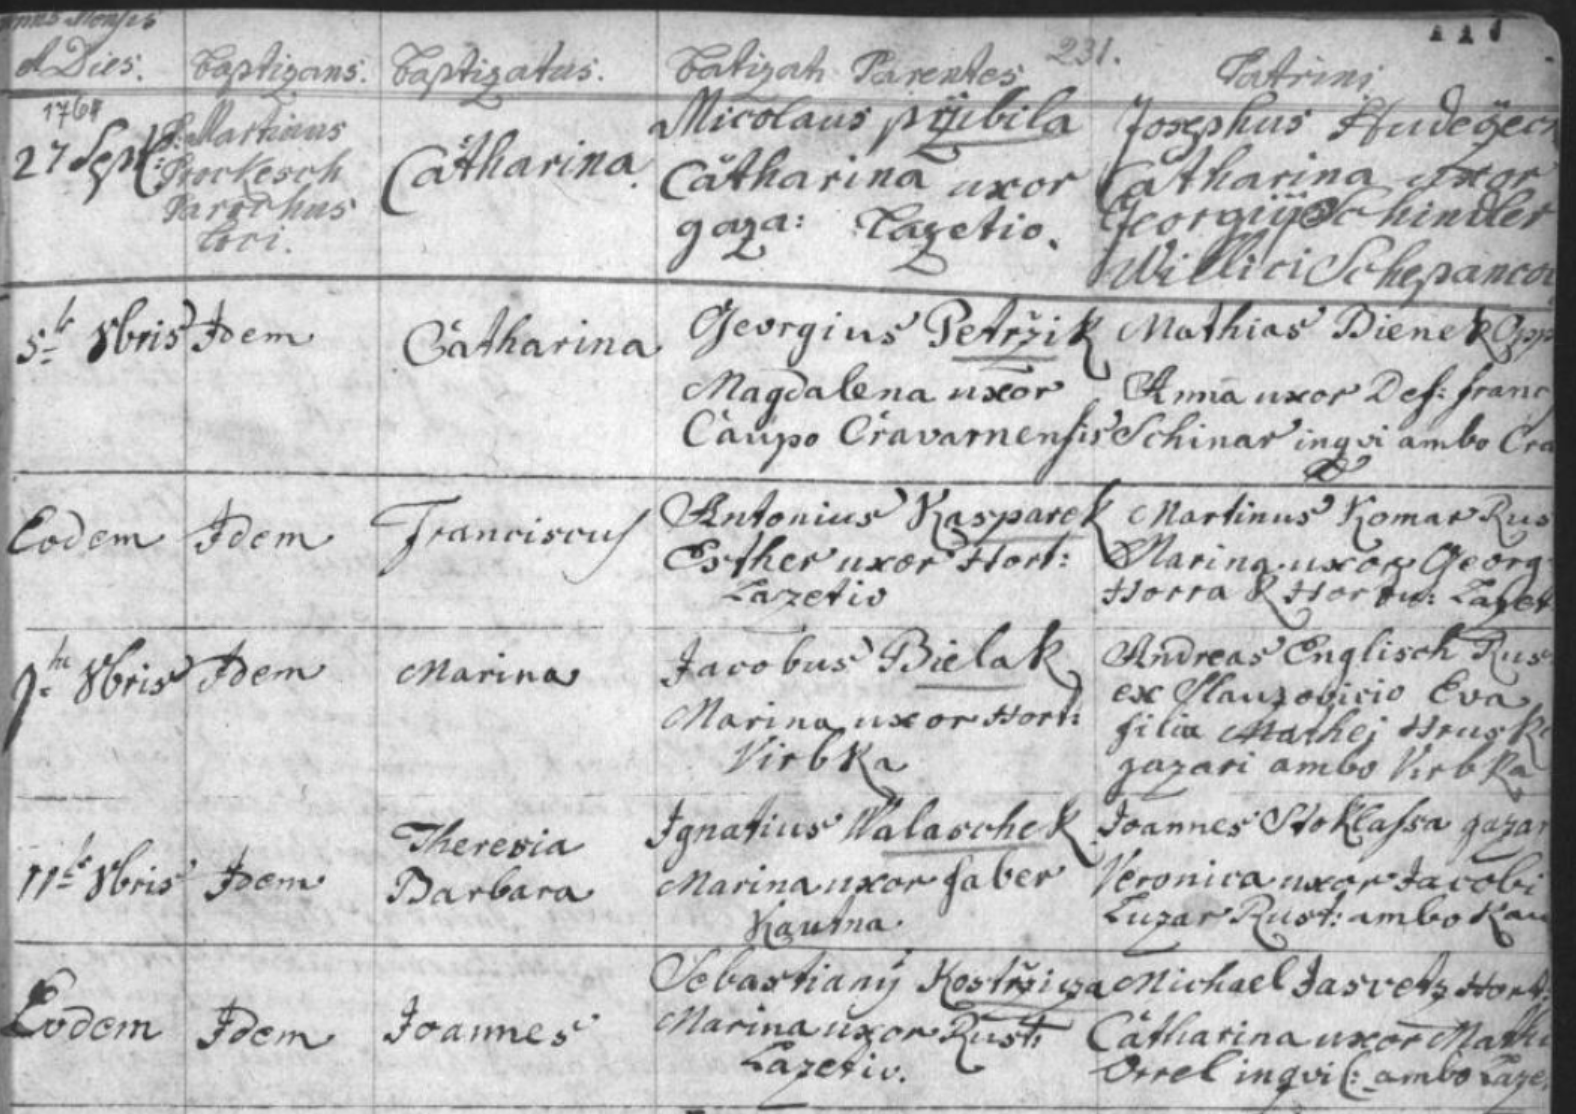 Annus Mensis
et Dies. Baptizans. Baptizatus. Batizati Parentes 231. Patrini
1761
27 Sept: P: Martinus
Prockesch
Parochus
loci.
Catharina
Nicolaus Prziibila
Catharina uxor
gaza: Lazetio.
Josephus Hudeÿecz
Catharina uxor
Georgii Schindler
Willici Schepancov
5ta 8bris Idem Catharina
Georgius Petržik
Magdalena uxor
Caupo Cravarnensis
Mathias Bienek Opp
Anna uxor Def: franc
Schinar inqvi ambo Cra
Eodem Idem Franciscus
Antonius Kasparek
Esther uxor Hort:
Lazetio
Martinus Komar Rus
Marina uxor Georg
Horrak Hortu: Lazet
9na 8bris Idem Marina
Jacobus Bielak
Marina uxor Hort:
Virbka
Andreas Englisch Rus
ex Slauzovicio Eva
filia Mathei Hruska
gazari ambo Virbka
11ta 8bris Idem
Theresia
Barbara
Ignatius Walaschek
Marina uxor faber
Kautna
Joannes Stoklassa gazar
Veronica uxor Jacobi
Luzar Rust: ambo Kau
Eodem Idem Joannes
Sebastianÿ Kostržicza
Marina uxor Rust:
Lazetio.
Michael Jasvetz Hort:
Catharina uxor Math
Orrel inqvi(: ambo Laze